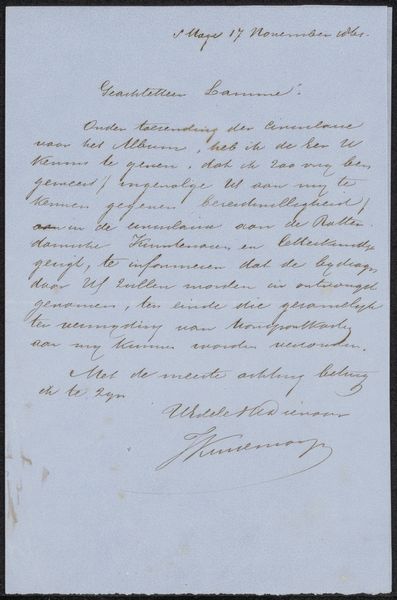 s'Hage 17 November 186
Geachte Heer Lamme!
Onder toezending der Circulaire
voor het Album, heb ik de Eer U
kennis te geven, dat ik zoo vrij ben
geweest / ingevolge Ul aan mij te
kennen gegeven bereidwilligheid /
in de circulaire aan de Rotter
damsche Kunstenaars en Letterkundige
gerigt, te informeren dat de bydrage
door Ul zullen worden in ontvangst
genomen, ten einde die gezamelyk
ter vermyding van transportkosten
aan my kunnen worden verzonden.
Met de meeste achting betuig
ik te zyn
UEdele Dienaar